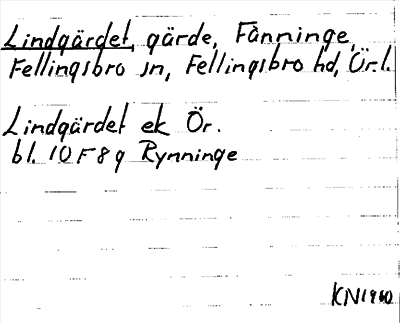 Lindgärdet, gärde, Fänninge,
Fellingsbro sn, Fellingsbro hd, Ör.l.
Lindgärdet ek Ör.
bl. 10 F 8 g Rynninge
KN1960